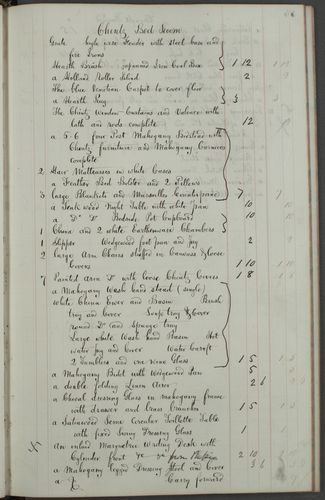 Chintz Bed Room
Grate high wire Fender with steel base and
fire Irons
Hearth Brush japanned Iron Coal Box 1 12
a Holland Roller Blind 2
The blue Venetian Carpet to cover floor
a Hearth Rug 3
The Chintz Window Curtains and Valance with
lath and rods complete 12
a 5-6 four Post Mahogany Bedstead with
Chintz furniture and Mahogany Cornices
complete
2 Hair Mattresses in white Cases
a Feather Bed Bolster and 2 Pillows
3 large Blankets and Marseilles Counterpane 7
a Teak wood Night Table with white pan 10
a Do Do Bedside Pot Cupboard 10
1 China and 2 white Earthenware Chambers
1 Slipper Wedgewood foot pan and jug 2
2 large Arm Chairs stuffed in Canvass & loose
Covers 1 10
7 Painted arm Do with loose Chintz Covers 1 8
a Mahogany Wash hand stand (single)
white China Ewer and Basin Brush
tray and Cover Soap tray & Cover
round Do and Sponge tray
Large white Wash hand Basin Hot
water jug and Cover Water Caraft
2 tumblers and one wine Glass 1 5
a Mahogany Bidet with Wedgewood Pan 5
a double folding Linen Airer 2 6
a Cheval dressing Glass in mahogany frame
with drawer and brass branches 1 5
a Japanned Semi Circular Toillette Table
with fixed Swing Dressing Glass 1
an inlaid Marquetrie Writing Desk with
Cylinder front &c 2 10
a Mahogany legged Dressing Stool and Cover 3 6
Carry forward